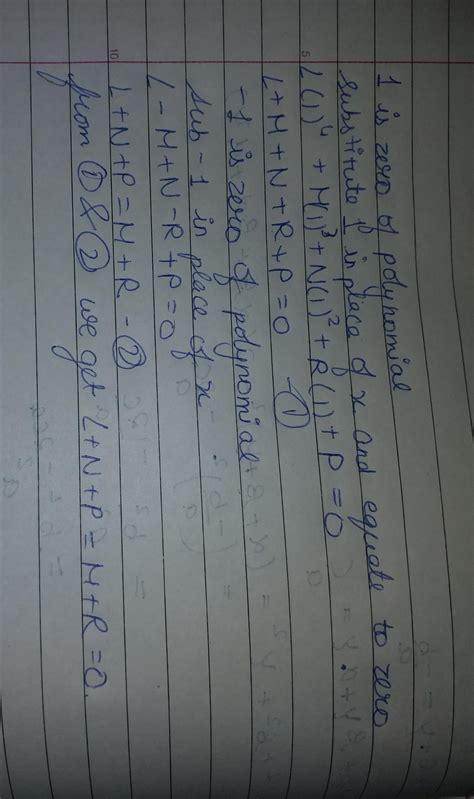 1 is zero of polynomial
substitute 1 in place of x and equate to zero
L(1)⁴ + M(1)³ + N(1)² + R(1) + P = 0
L+M+N+R+P=0 - ①
-1 is zero of polynomial.
sub -1 in place of x
L-M+N-R+P=0
L+N+P=M+R - ②
from ① & ② we get L+N+P=M+R=0.
5
10